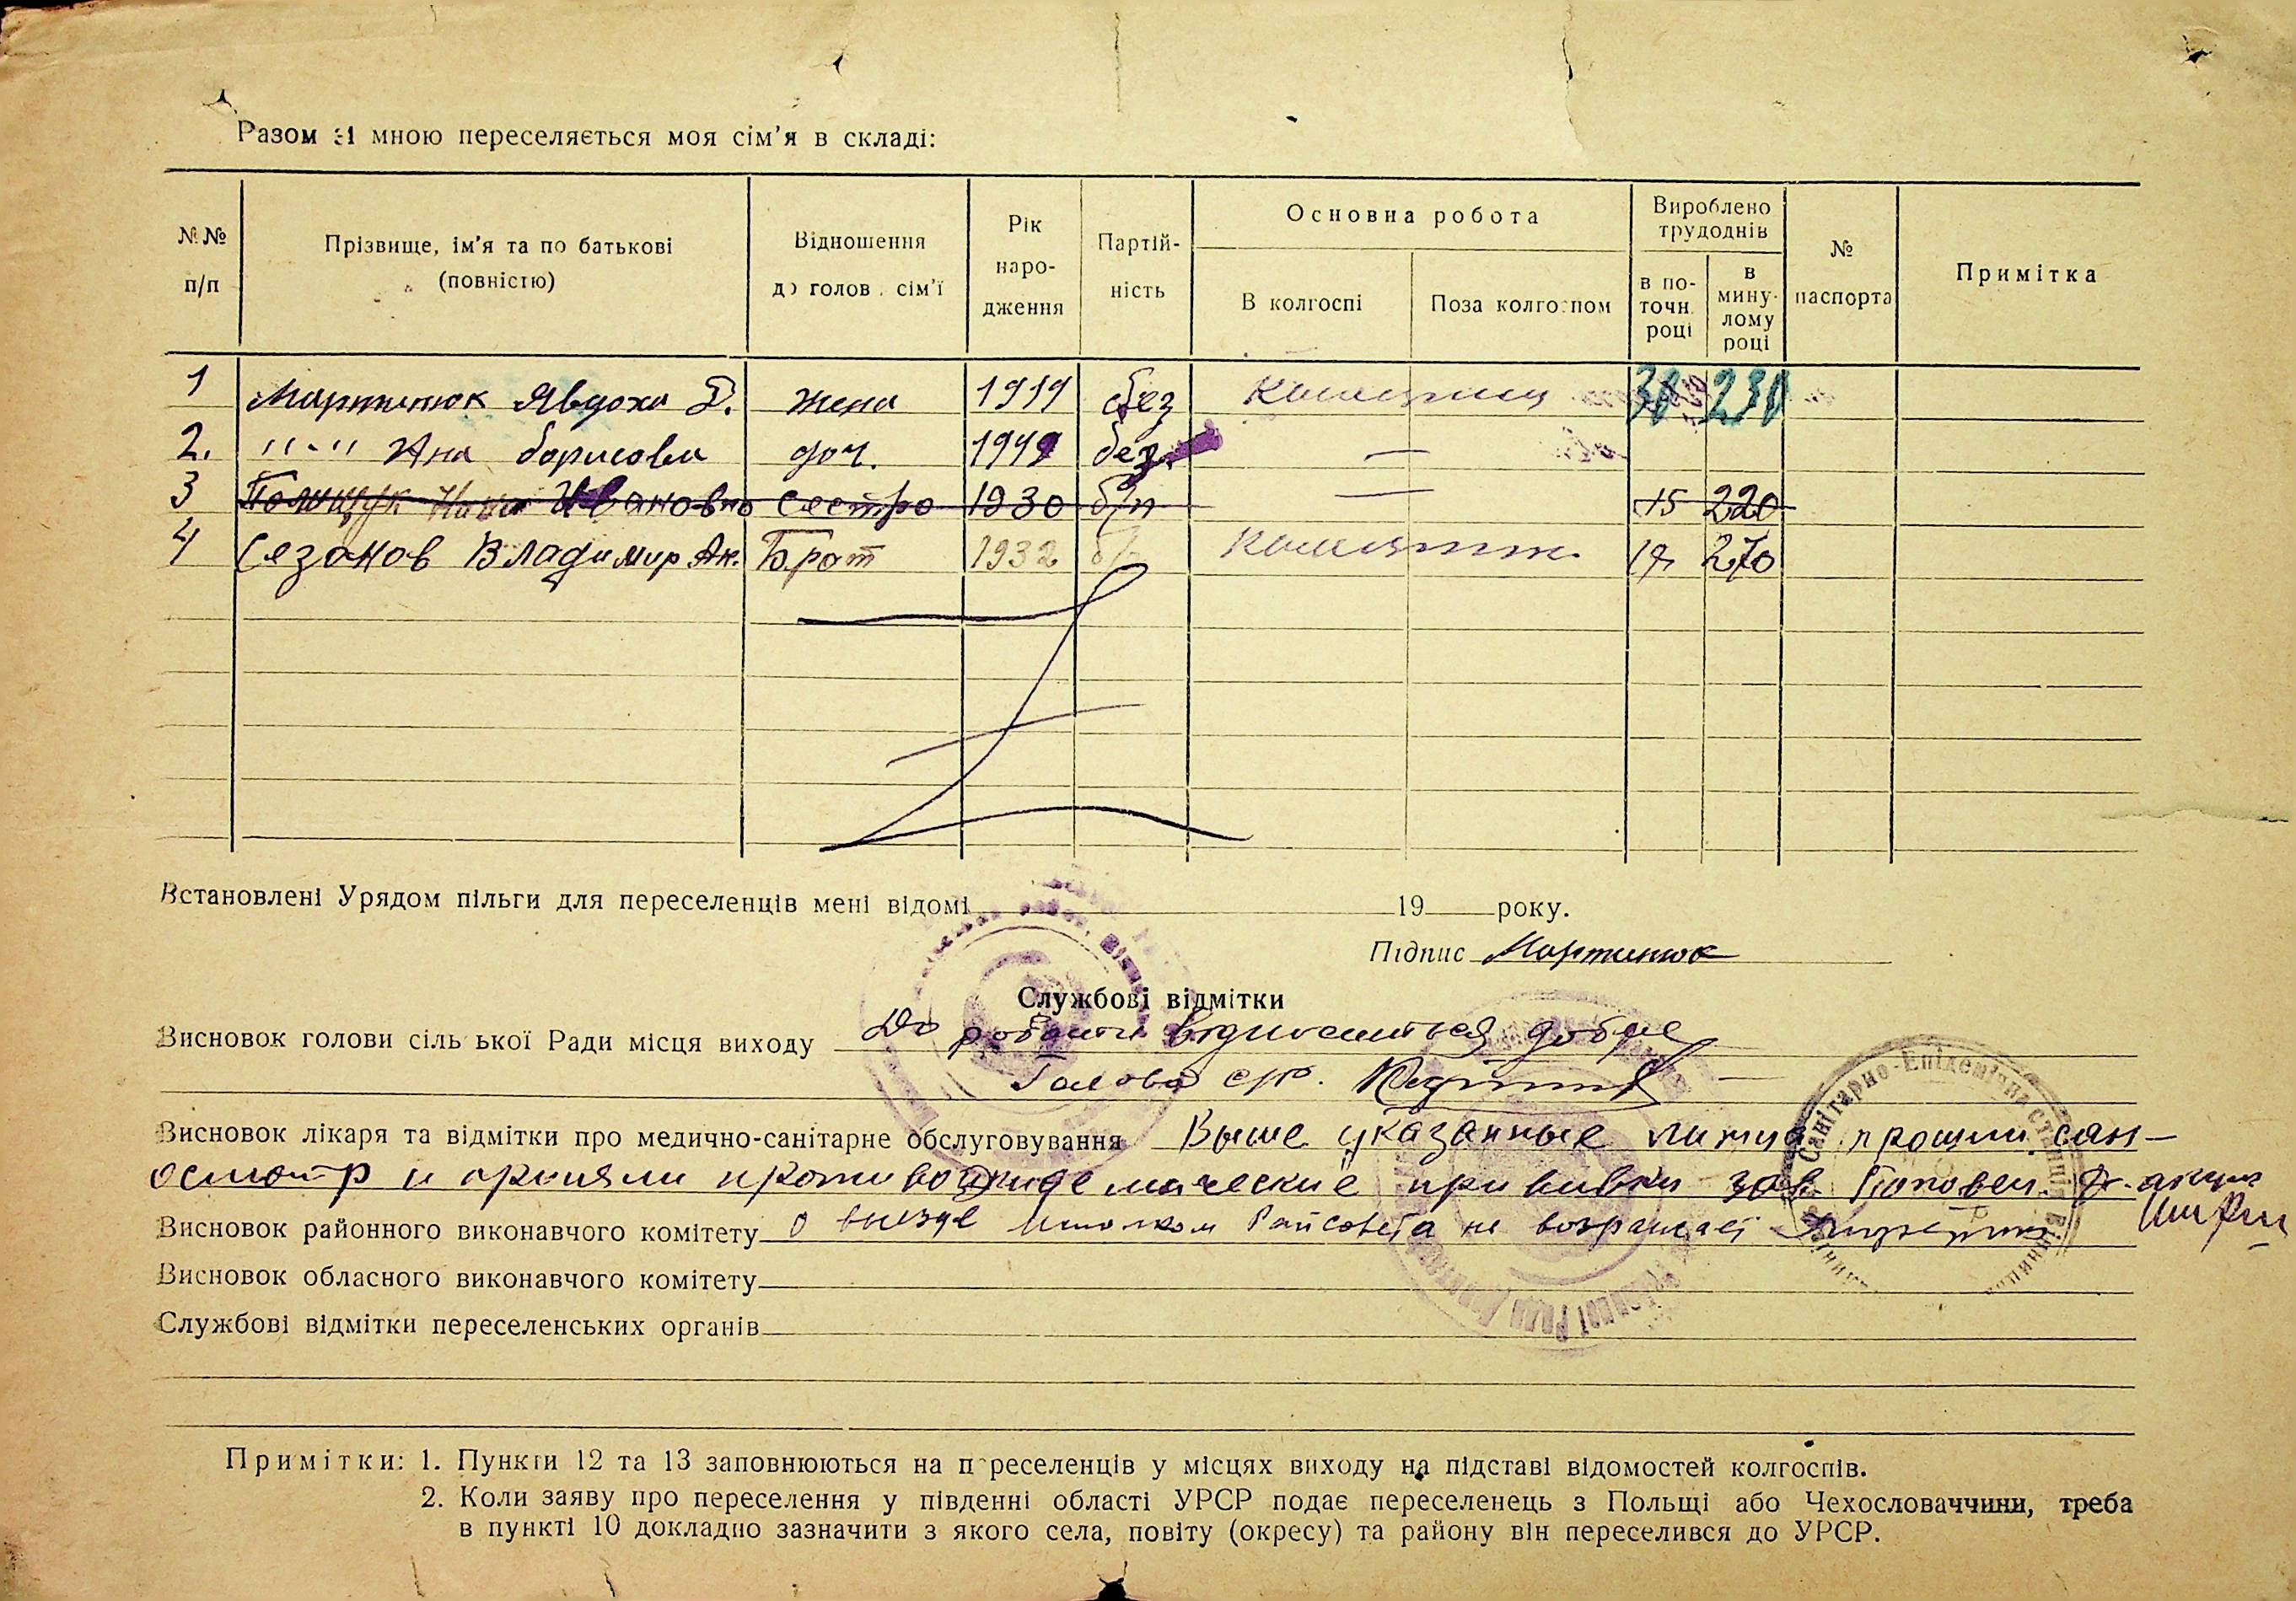 Разом зі мною переселяється моя сім'я в складі:
№№ п/п
Прізвище, ім'я та по батькові (повністю)
Відношення до голов. сім'ї
Рік народження
Партійність
Основна робота
В колгоспі
Поза колгоспом
Вироблено трудоднів
в поточн. році
в минулому році
№ паспорта
Примітка
1 Мартинюк Явдоха жена 1919 без 30 230
2. "-" Ана борисовна доч. 1949 без —
3 Полищук Ивановна сестра 1930 б/п — 15 220
4 Сезанов Владимир Ак. Брат 1932 б/п 270
Встановлені Урядом пільги для переселенців мені відомі 19 року.
Підпис Мартинюк
Службові відмітки
Висновок голови сільської Ради місця виходу До роботи відноситься добре
Голова с/р.
Висновок лікаря та відмітки про медично-санітарне обслуговування Выше указанные лица прошли сан-
осмотр и приняли противоэпидемические прививки зав.
Висновок районного виконавчого комітету О выезде исполком Райсовета не возражает
Висновок обласного виконавчого комітету
Службові відмітки переселенських органів
Санітарно-Епідемічна станція
Примітки: 1. Пункти 12 та 13 заповнюються на переселенців у місцях виходу на підставі відомостей колгоспів.
2. Коли заяву про переселення у південні області УРСР подає переселенець з Польщі або Чехословаччини, треба
в пункті 10 докладно зазначити з якого села, повіту (окресу) та району він переселився до УРСР.